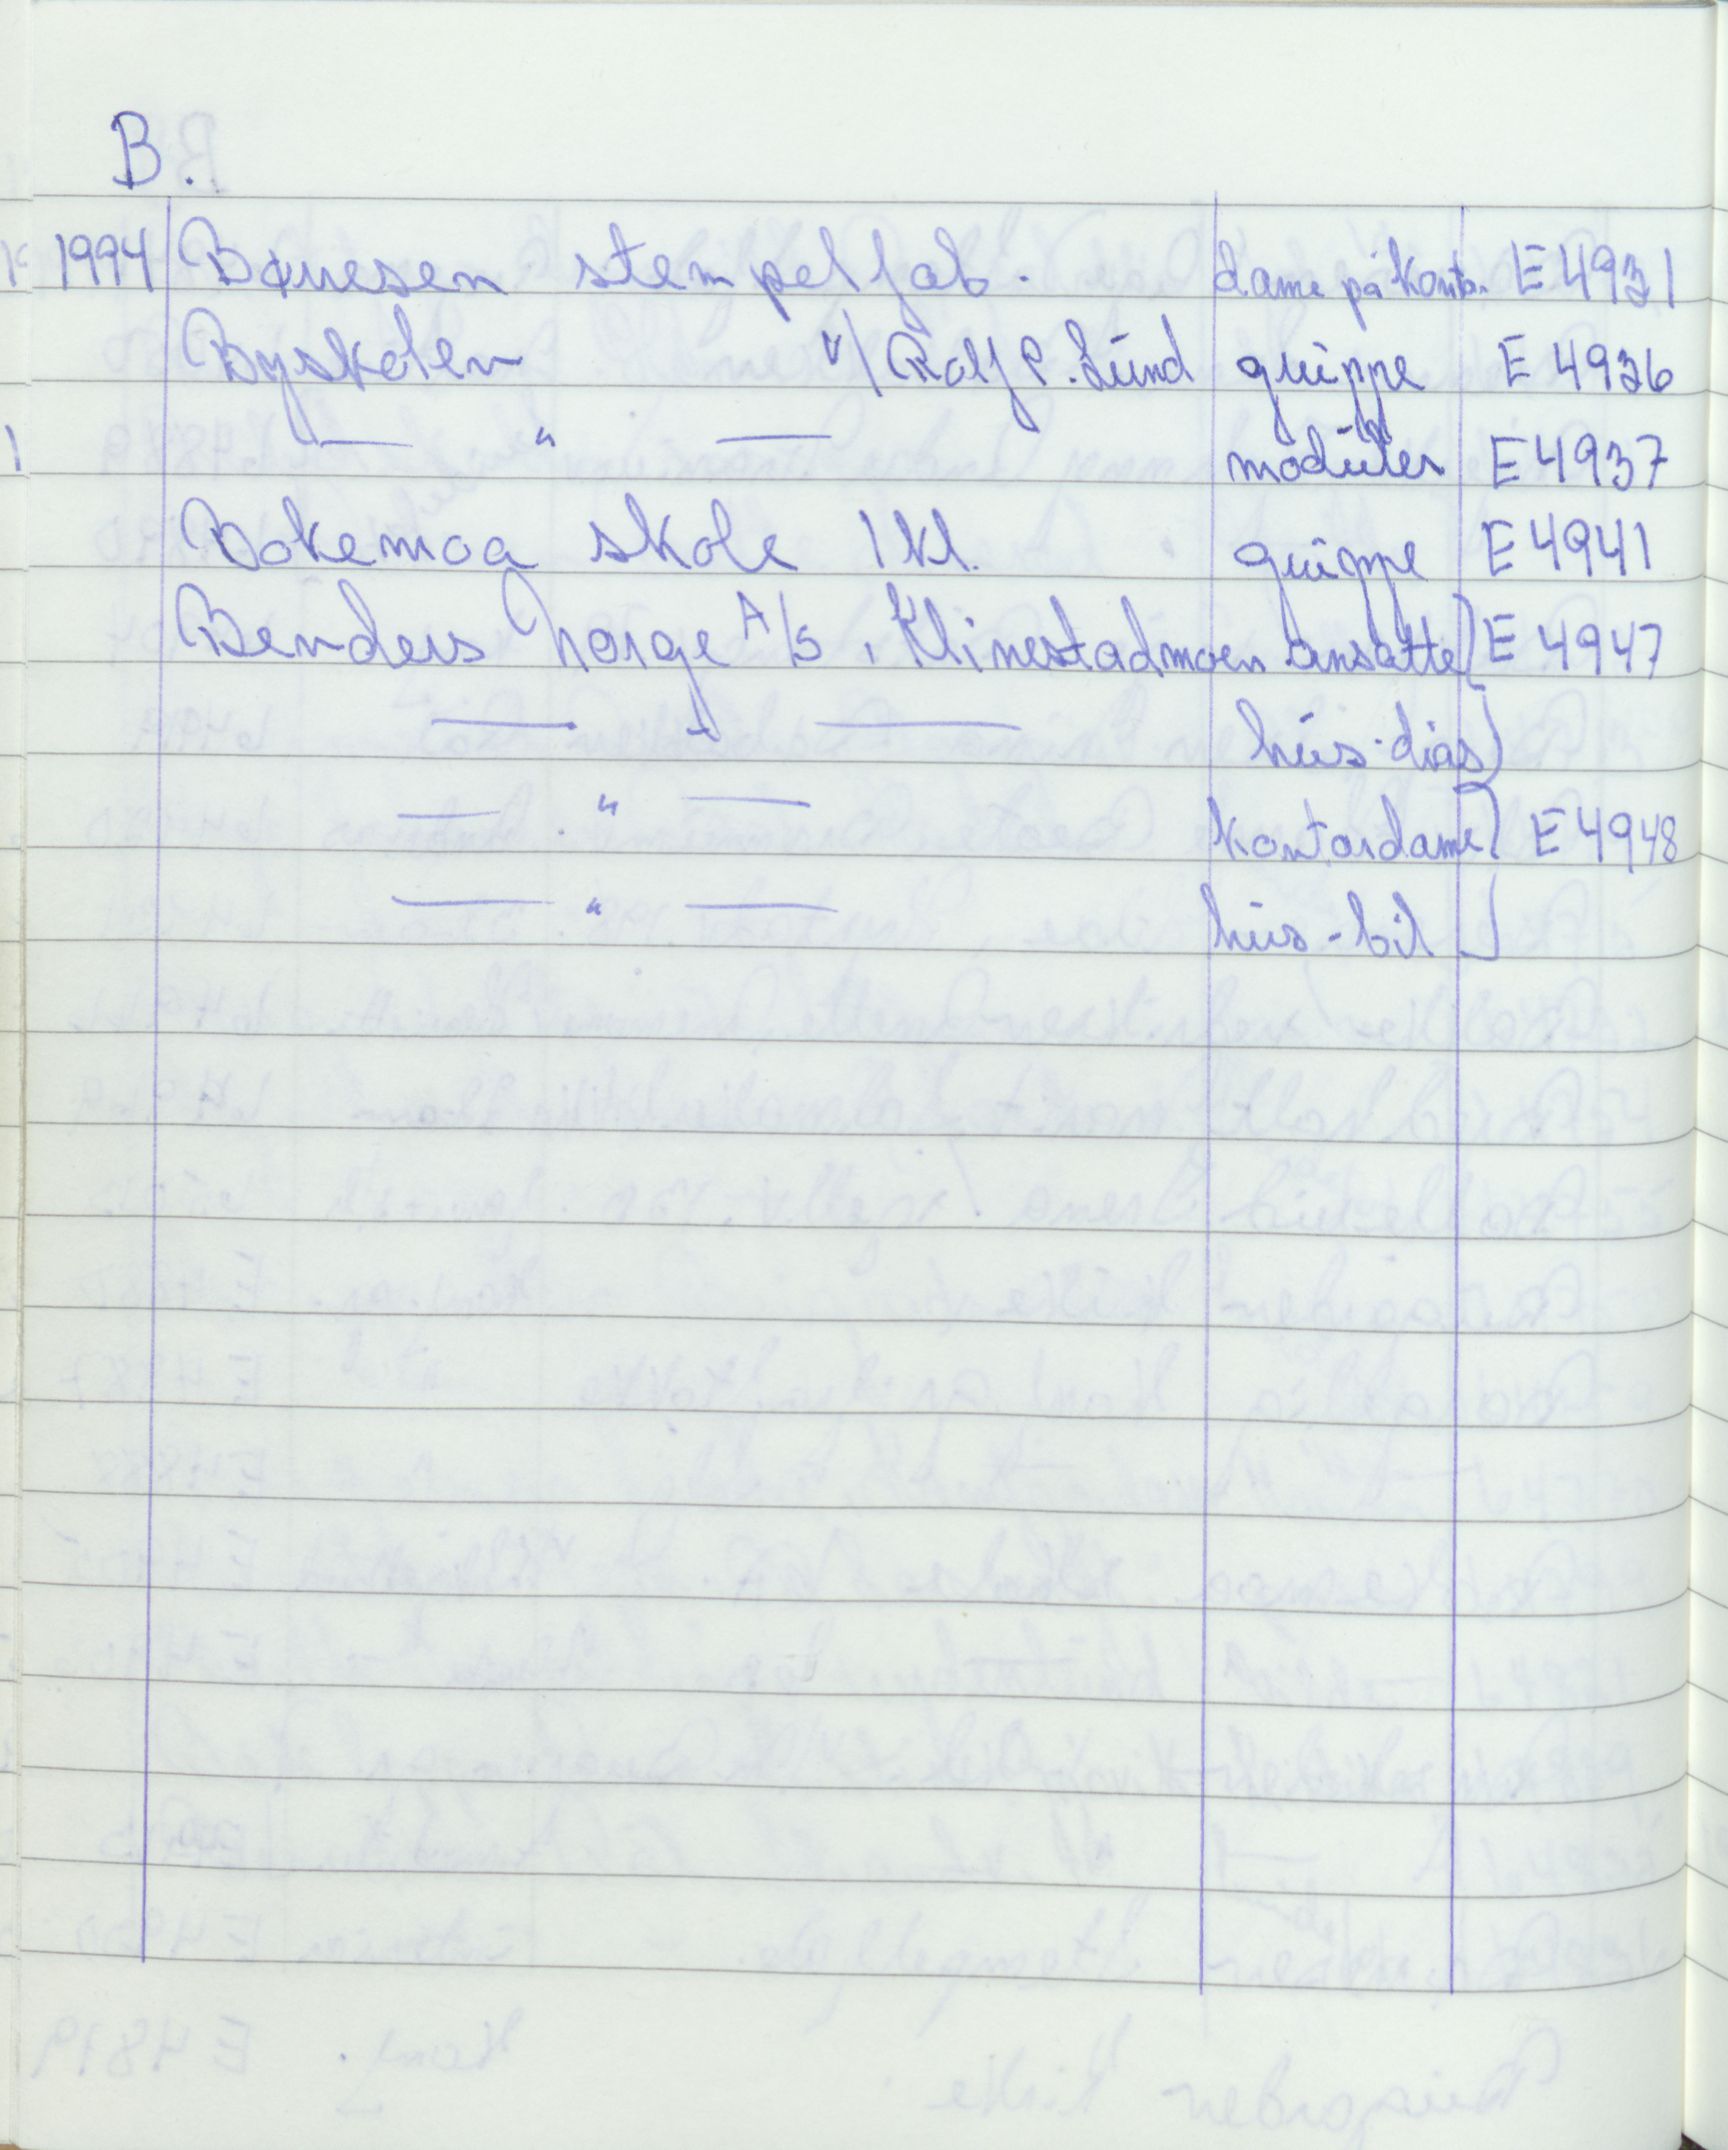 B.
1994 Bøuesen stempelfab. dame på kontor E 4931
Byskolen v/ Rolf P. Lund gruppe E 4936
— " — modüler E 4937
Bokemoa skole 1 kl. gruppe E 4941
Benders Norge A/S, Klinestadmoen ansatte E 4947
— " — hús-dias
— " — kontordame E 4948
— " — hús-bil